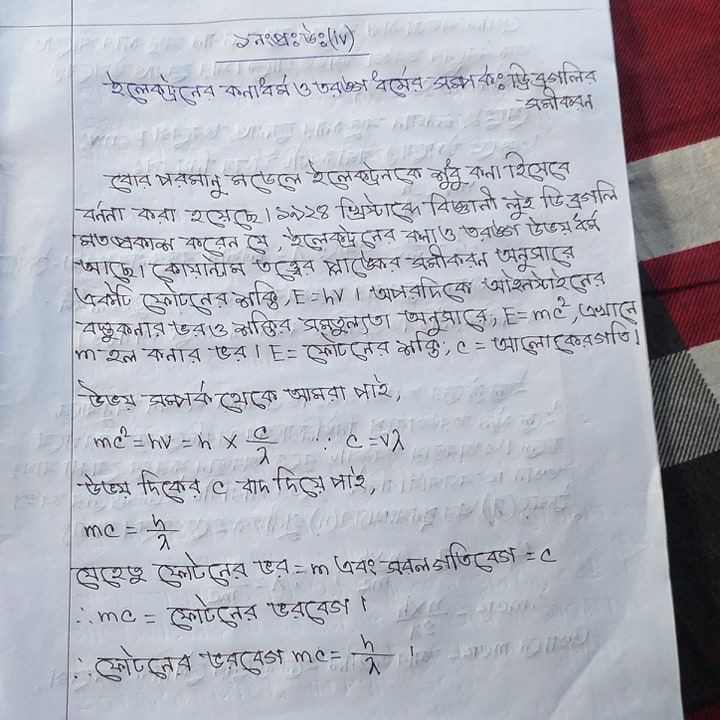 ১নং প্রঃ উঃ (iv)
ইলেকট্রনের কনাধর্ম ও তরঙ্গ ধর্মের সম্পর্ক: ডি ব্রগলির
সমীকরন
বোর পরমানু মডেলে ইলেকট্রনকে শুধু কনা হিসেবে
বর্ননা করা হয়েছে। ১৯২৪ খ্রিস্টাব্দে বিজ্ঞানী লুই ডি ব্রগলি
মতপ্রকাশ করেন যে, ইলেকট্রনের কনা ও তরঙ্গ উভয় ধর্ম
আছে। কোয়ান্টাম তত্ত্বের প্লাঙ্কের সমীকরন অনুসারে
একটি ফোটনের শক্তি, E = hν । অপরদিকে আইনস্টাইনের
বস্তুকনার ভর ও শক্তির সমতুল্যতা অনুসারে, E = mc², এখানে
m হল কনার ভর। E = ফোটনের শক্তি, c = আলোকের গতি।
উভয় সম্পর্ক থেকে আমরা পাই,
mc² = hν = h × c/λ ∴ c = νλ
উভয় দিকের c বাদ দিয়ে পাই,
mc = h/λ
যেহেতু ফোটনের ভর = m এবং সরল গতিবেগ = c
∴ mc = ফোটনের ভরবেগ।
∴ ফোটনের ভরবেগ mc = h/λ ।